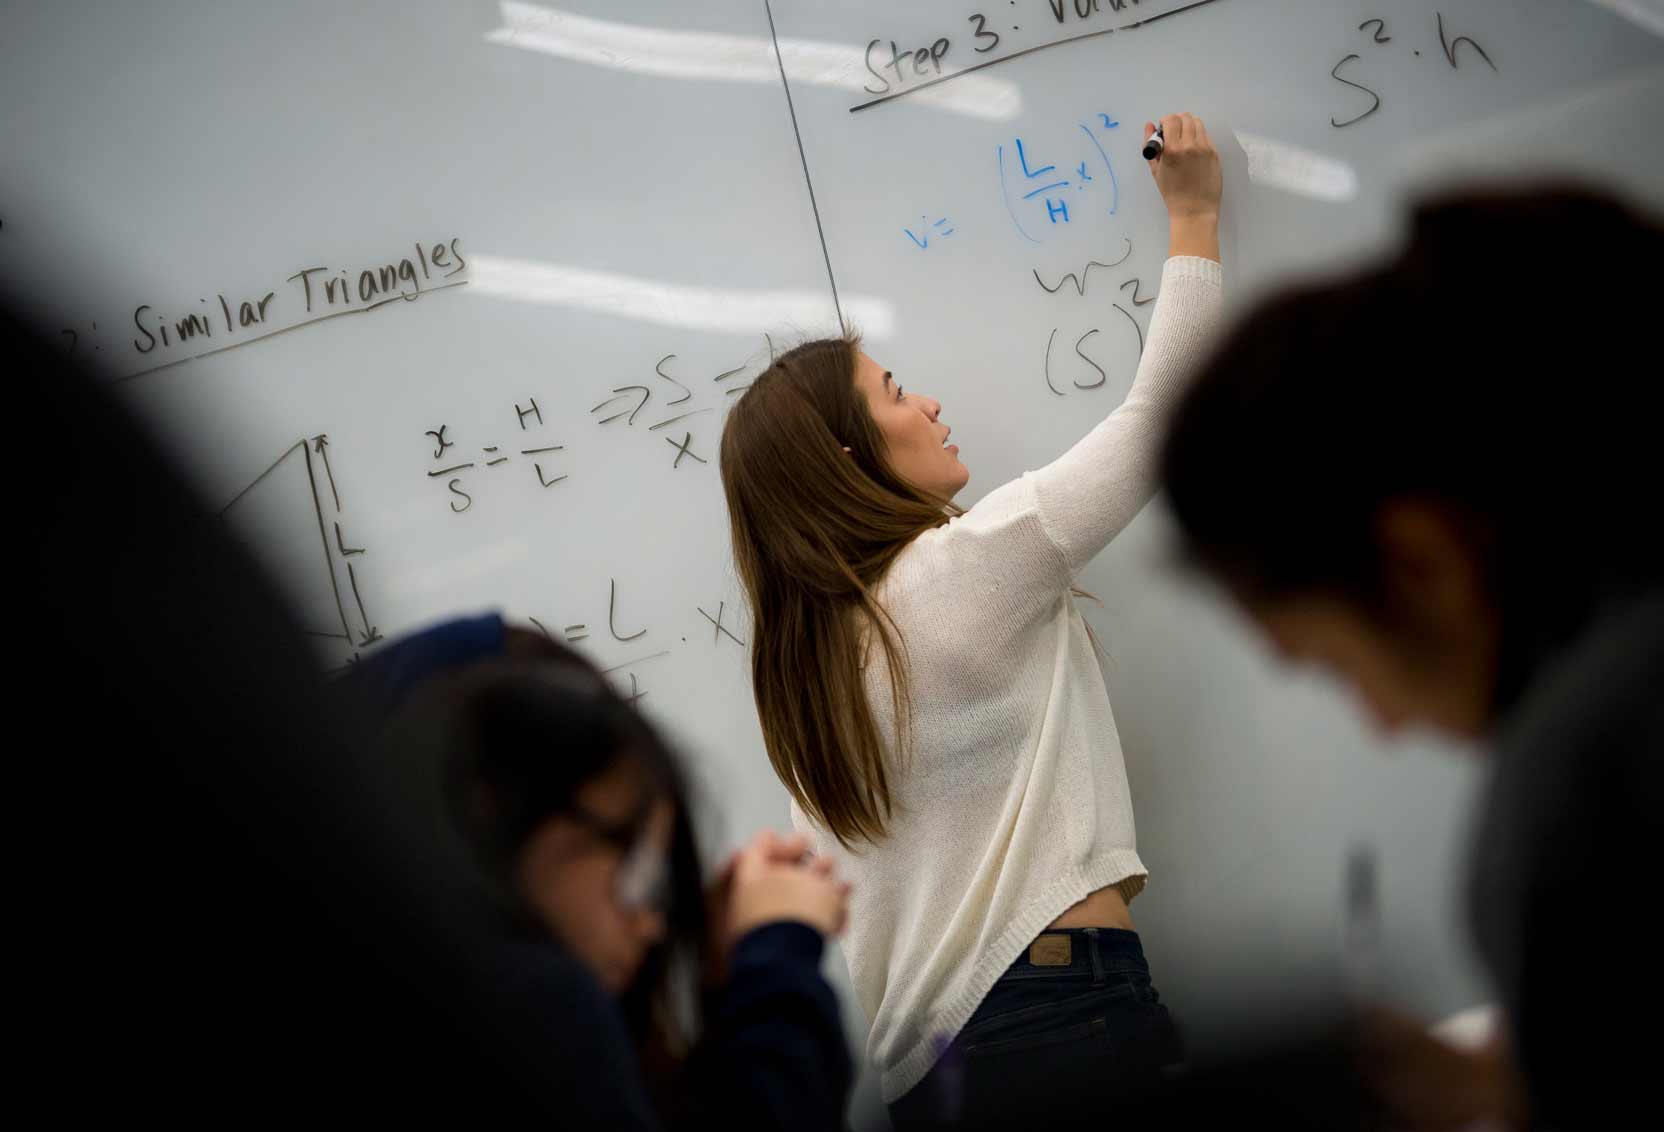 Similar Triangles
x/S = H/L ⇒ S/X =
L
= L/ . X
Step 3:
S² . h
V = (L/H . x)²
(S)²